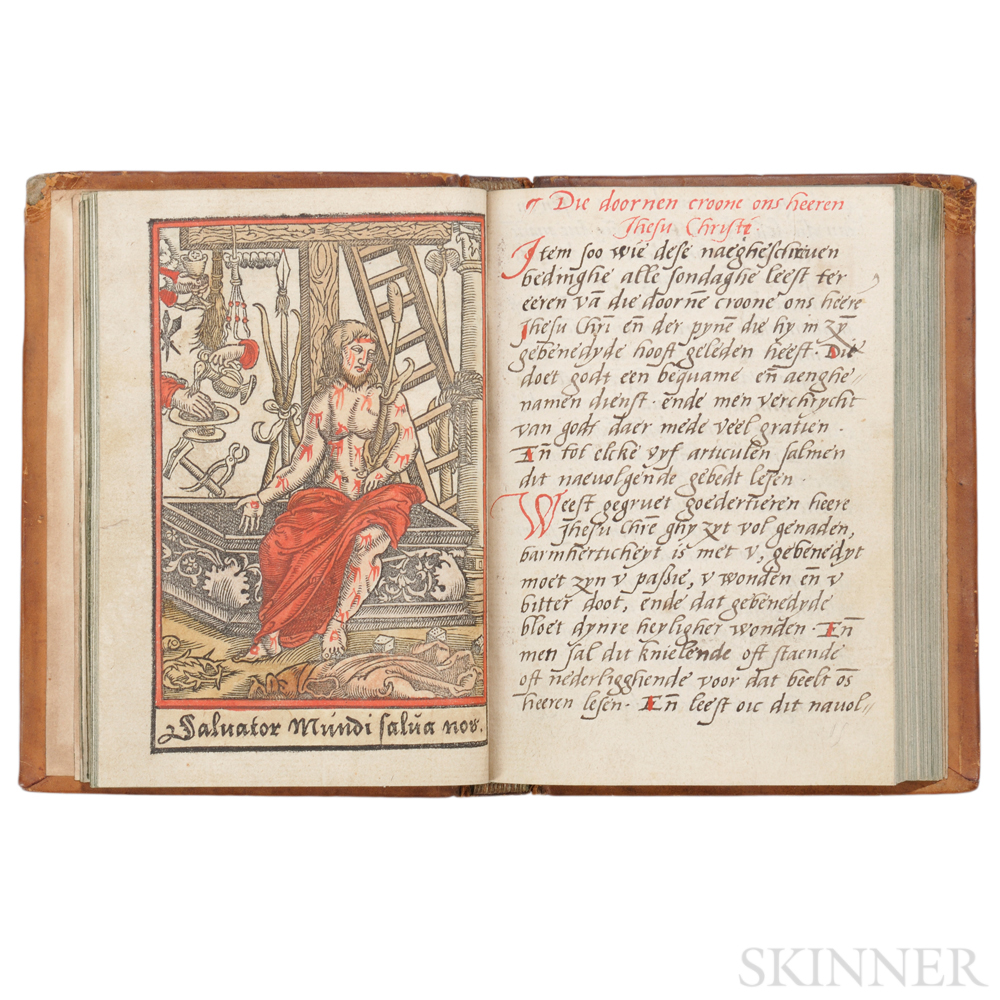 Saluator Mundi salua nos.
¶ Die doornen croone ons heeren
Jhesu Christi
Item soo wie dese naegheschreuen
bedinghe alle sondaghe leest ter
eeren vā die doornē croone ons heere
Jhesu Chri eñ der pynē die hy in zȳ
gebenedyde hooft geleden heeft. Dit
doet godt een bequame eñ aenghe〃
namen dienst. ende men verchrycht
van godt daer mede veel gratien.
Eñ tot elcke vyf articulen salmen
dit naevolgende gebedt lesen.
Weest gegruet goedertieren heere
Jhesu Chrē ghy zyt vol genaden,
barmherticheyt is met v, gebenedyt
moet zyn v paßie, v wonden eñ v
bitter doot, ende dat gebenedyde
bloet dynre heyligher wonden. Eñ
men sal dit knielende oft staende
oft nederligghende voor dat beelt ōs
heeren lesen. Eñ leest oic dit nauol〃
SKINNER